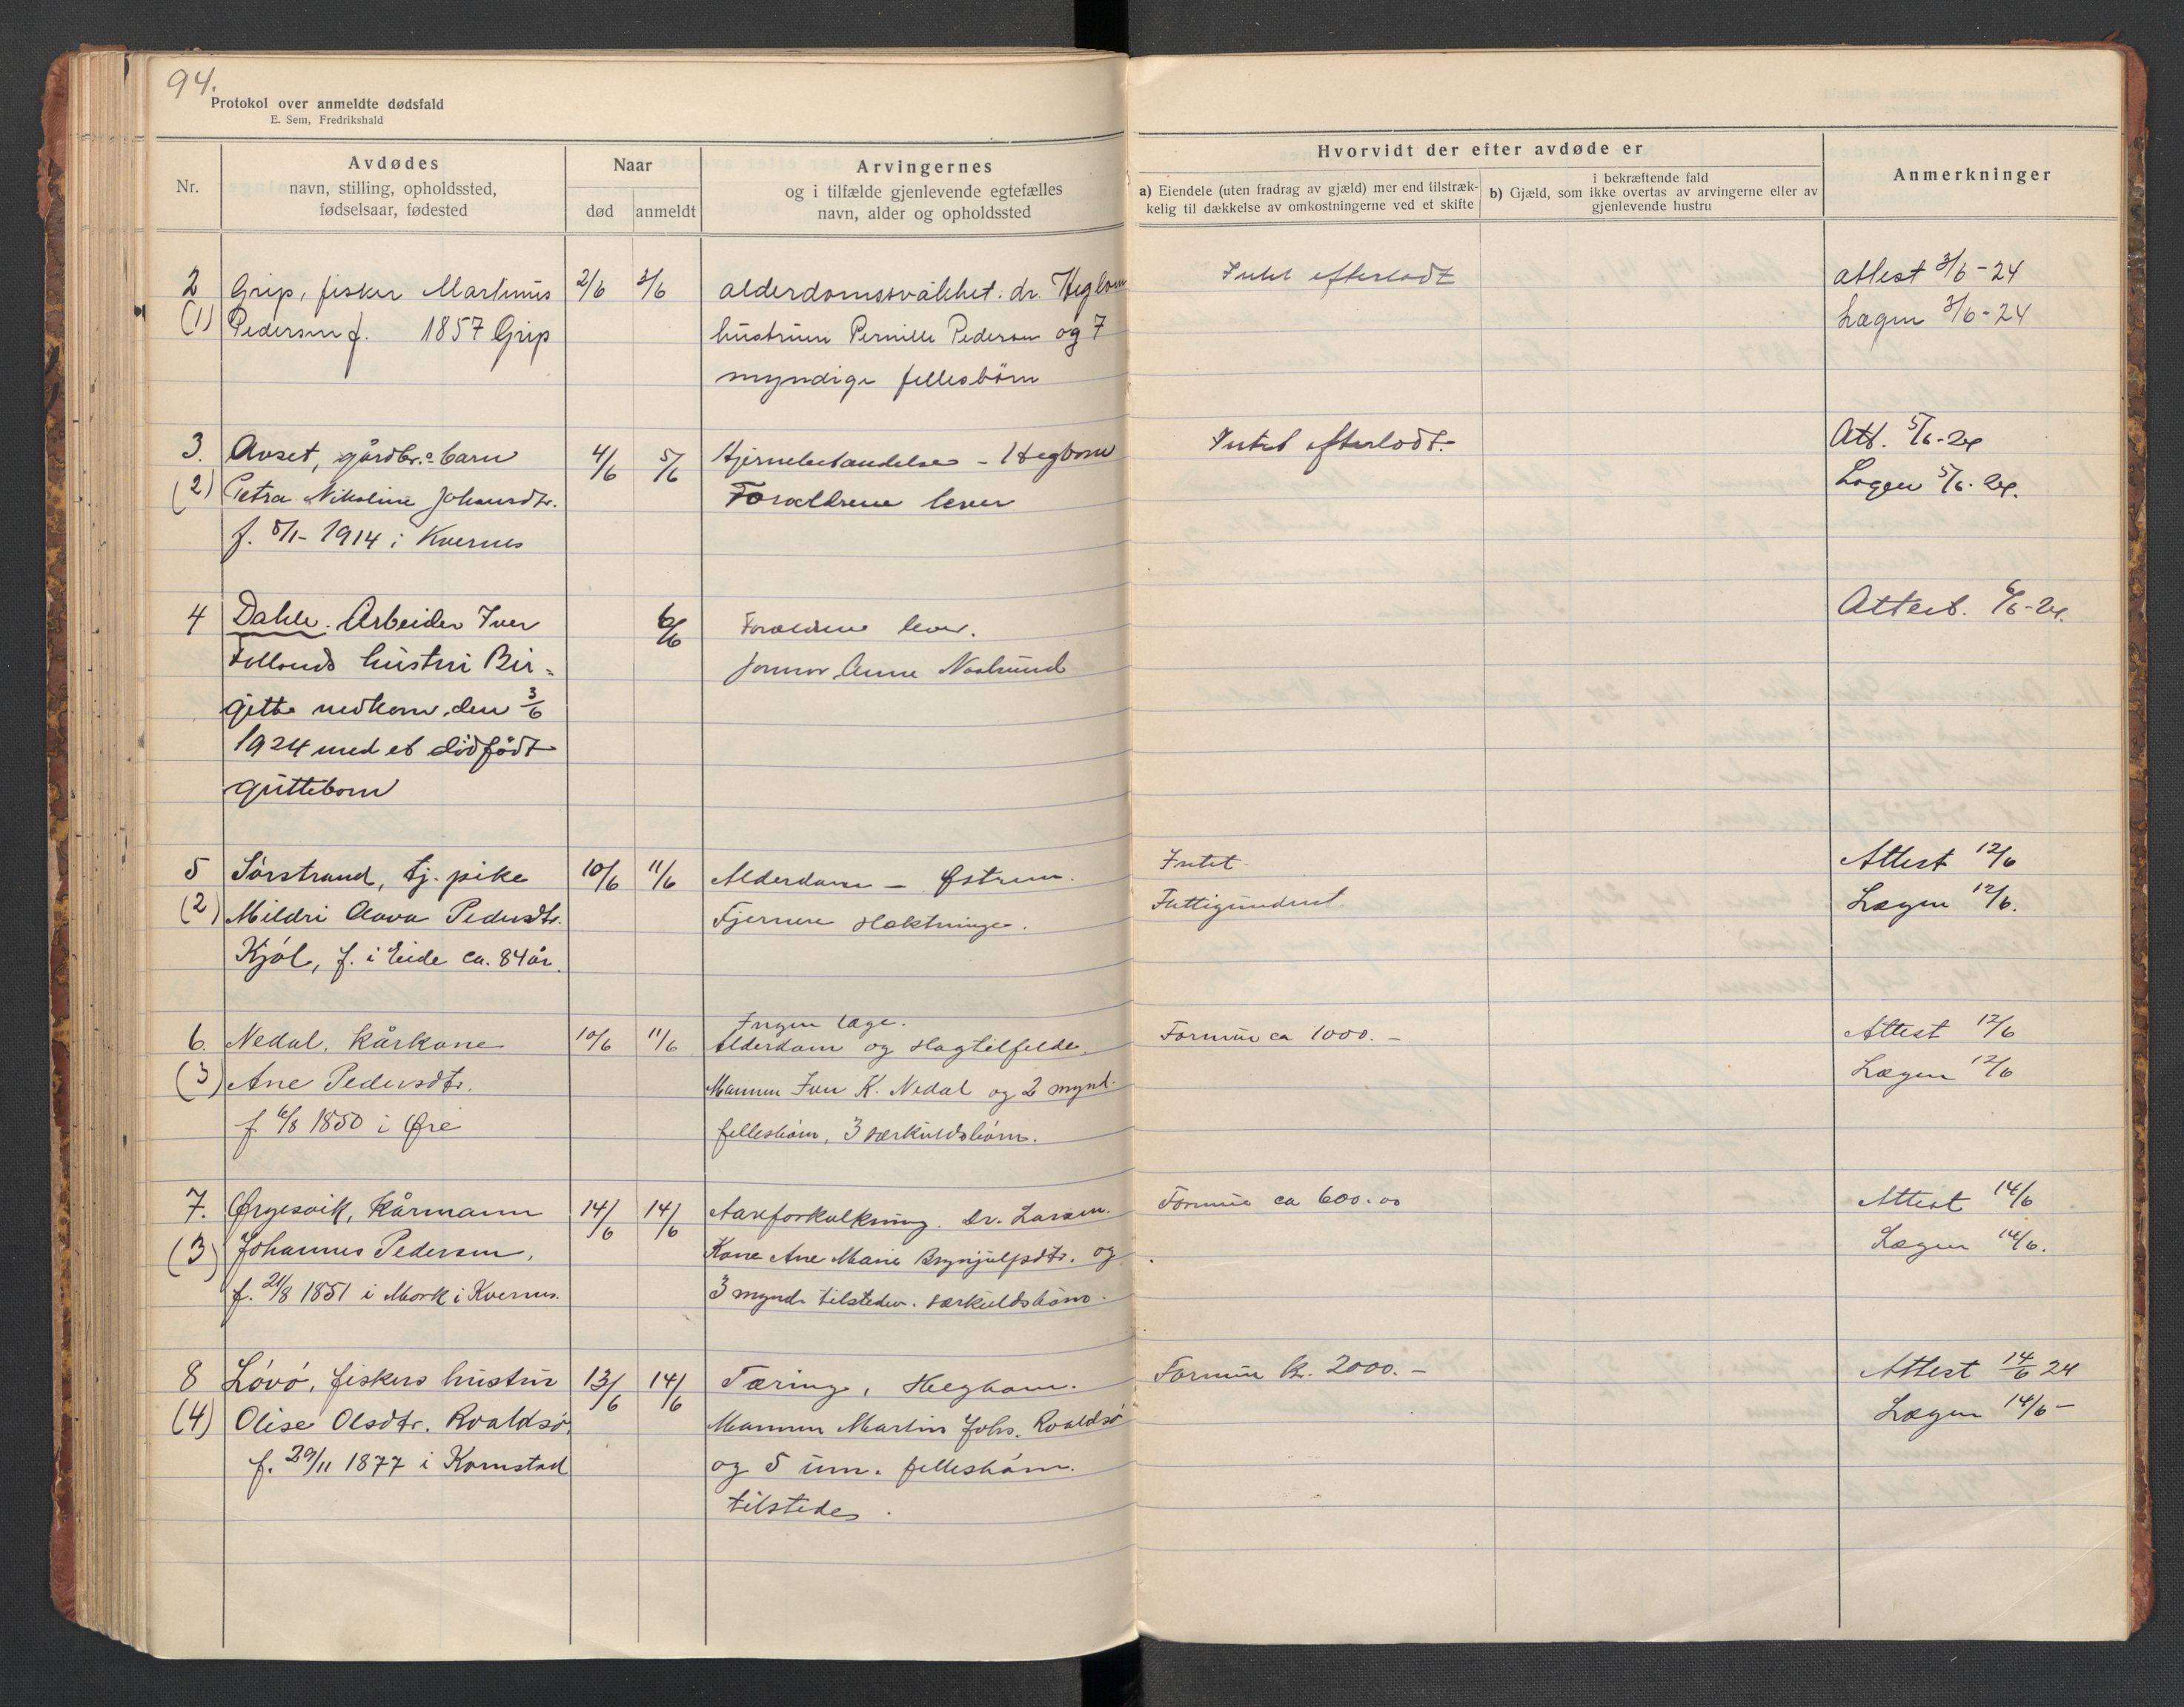 94.
Protokol over anmeldte dødsfald
E. Sem, Fredrikshald
Nr.
Avdødes
navn, stilling, opholdssted,
fødselsaar, fødested
Naar
død anmeldt
Arvingernes
og i tilfælde gjenlevende egtefælles
navn, alder og opholdssted
Hvorvidt der efter avdøde er
a) Eiendele (uten fradrag av gjæld) mer end tilstræk-
kelig til dækkelse av omkostningerne ved et skifte
i bekræftende fald
b) Gjæld, som ikke overtas av arvingerne eller av
gjenlevende hustru
Anmerkninger
2 Grip, fisker Martinus 2/6 3/6 alderdomssvakhet. dr. Hegbom Intet efterladt attest 3/6-24
(1) Pedersen f. 1857 Grip hustruen Pernille Pedersen og 7 Lægen 3/6-24
myndige fellesbørn
3. Avset, gårdbr.s barn 4/6 5/6 Hjernebetændelse - Hegbom Intet efterladt. Att. 5/6-24
(2) Petra Nikoline Johansdtr. Forældrene lever Lægen 5/6-24.
f. 5/1-1914 i Kvernes
4 Dahle. Arbeider Iver 6/6 Forældrene lever. Attest. 6/6-24.
hustru Bir-
gitte nedkom den 3/6 jormor Anne
1924 med et dødfødt
guttebarn
5 Sørstrand, tj. pike 10/6 11/6 Alderdom - Østrem. Intet Attest 12/6
(2) Mildri Pedersdtr. Fjernere slektninge. Fattigunderst. Lægen 12/6.
Kjøl, f. i Eide ca. 84 år.
Ingen læge.
6. Nedal, kårkone 10/6 11/6 Alderdom og slagtilfelde. Formue ca 1000.- Attest 12/6
(3) Ane Pedersdtr. Mannen Iver K. Nedal og 2 mynd. Lægen 12/6
f. 6/8 1850 i Øre fellesbørn, 3 særkuldsbørn.
7. Ørgesvik, kårmann 14/6 14/6 Aareforkalkning. Dr. Larsen. Formue ca 600.00 Attest 14/6
(3) Johannes Pedersen, Kone Ane Marie Brynjulfsdtr. og Lægen 14/6.
f. 21/8 1851 i Mork i Kvernes. 3 mynd. tilstedev. særkuldsbørn.
8 Løvø, fiskers hustru 13/6 14/6 Tæring, Hegbom. Formue kr. 2000.- Attest 14/6 24
(4) Olise Olsdtr. Roaldsø, Mannen Martin Johs. Roaldsø Lægen 14/6-
f. 29/11 1877 i Kornstad og 5 um. fellesbørn.
tilstede.